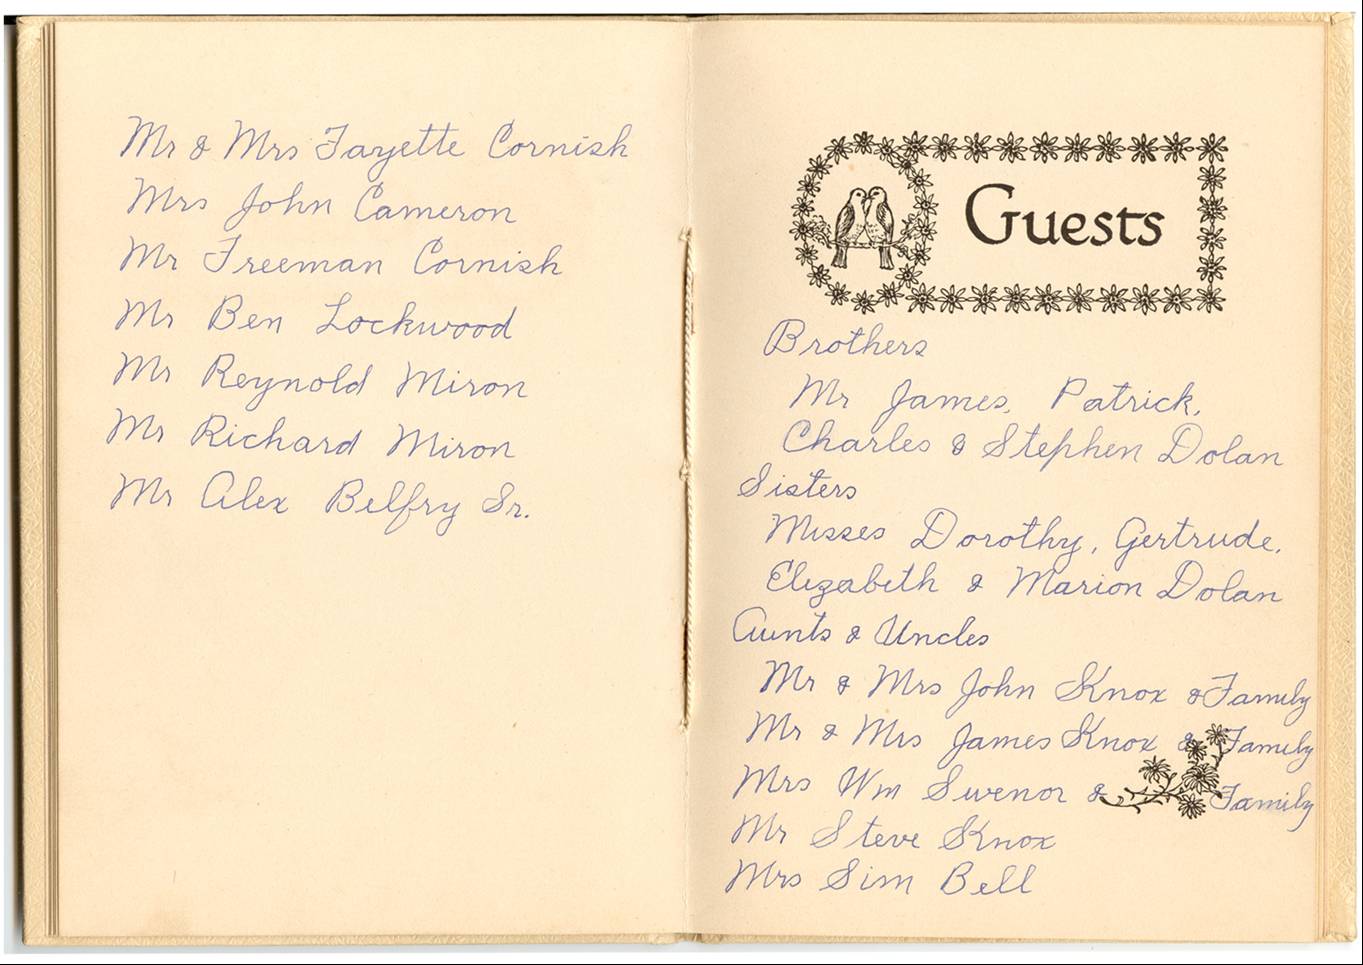 Mr & Mrs Fayette Cornish
Mrs John Cameron
Mr Freeman Cornish
Mr Ben Lockwood
Mr Reynold Miron
Mr Richard Miron
Mr Alex Belfry Sr.
Guests
Brothers
Mr James, Patrick,
Charles & Stephen Dolan
Sisters
Misses Dorothy, Gertrude,
Elizabeth & Marion Dolan
Aunts & Uncles
Mr & Mrs John Knox & Family
Mr & Mrs James Knox & Family
Mrs Wm Swenor & Family
Mr Steve Knox
Mrs Sim Bell